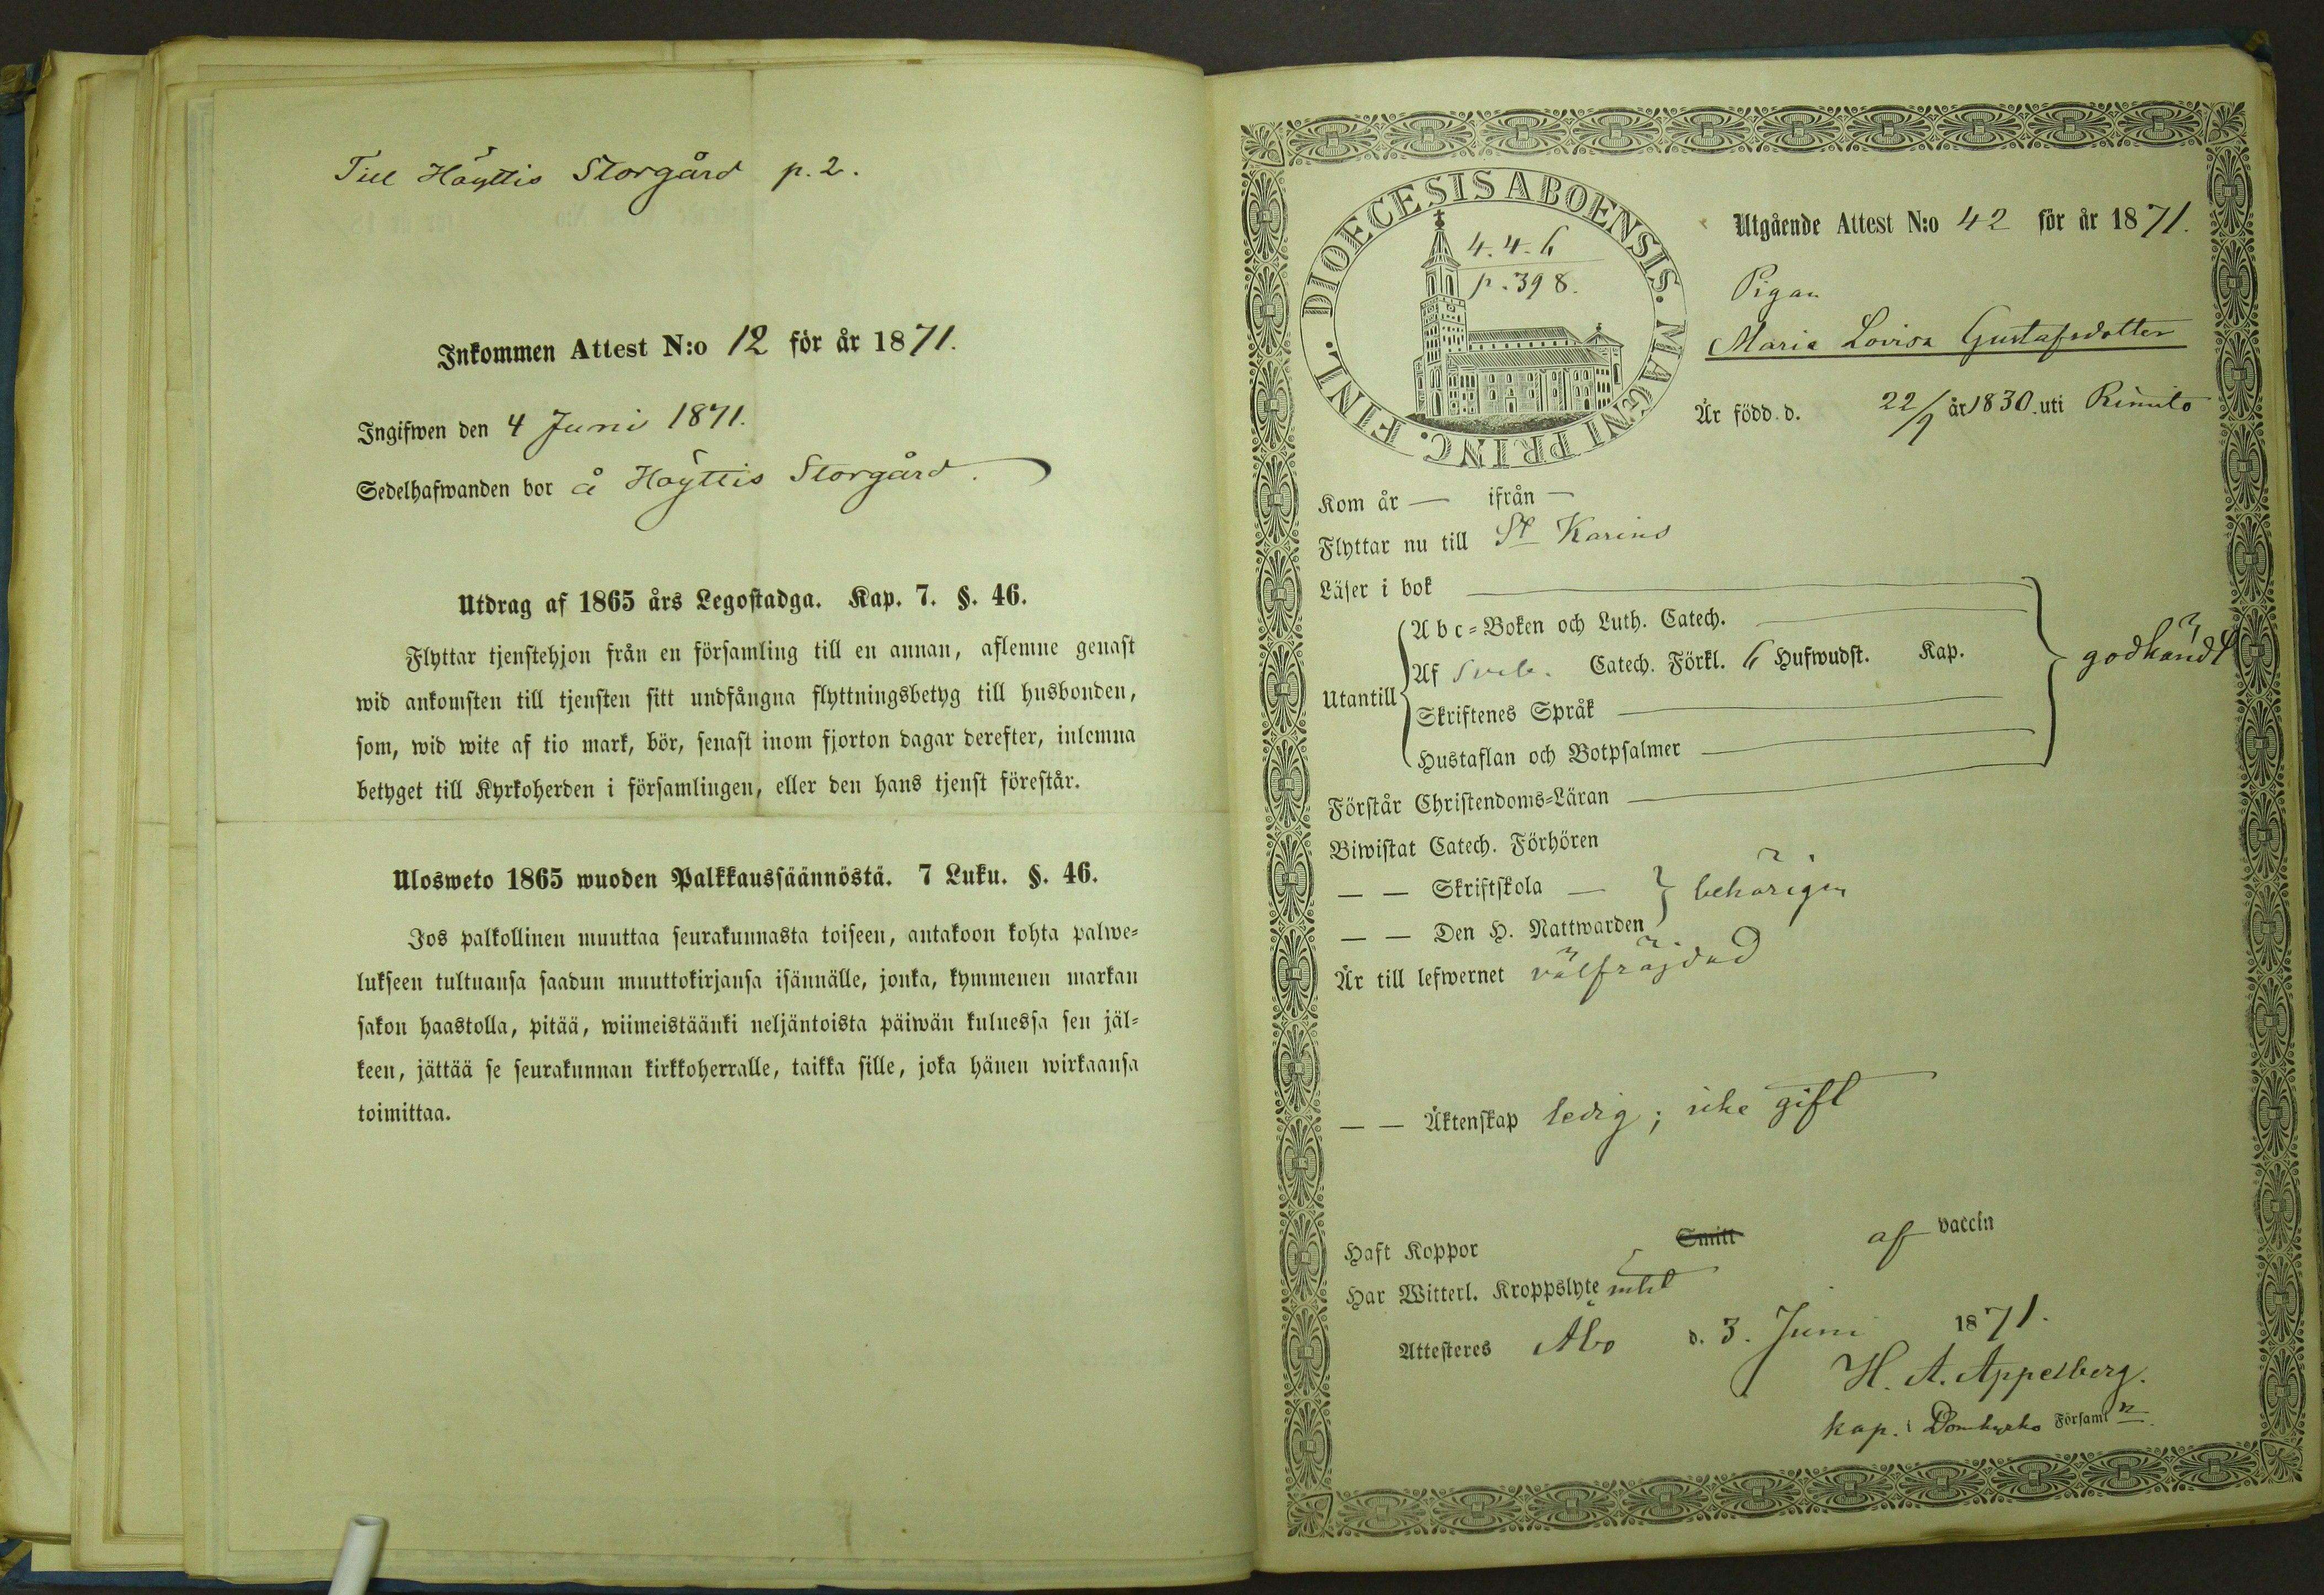 Till Höyttis Storgård p. 2.
Inkommen Attest N:o 12 för år 1871.
Ingifwen den 4 Juni 1871.
Sedelhafwanden bor å Höyttis Storgård.
Utdrag af 1865 års Legostadga. Kap. 7. §. 46.
Flyttar tjenstehjon från en församling till en annan, aflemne genast
wid ankomsten till tjensten sitt undfångna flyttningsbetyg till husbonden,
som, wid wite af tio mark, bör, senast inom fjorton dagar derefter, inlemna
betyget till Kyrkoherden i församlingen, eller den hans tjenst förestår.
Ulosweto 1865 wuoden Palkkaussäännöstä. 7 Luku. §. 46.
Jos palkollinen muuttaa seurakunnasta toiseen, antakoon kohta palwe-
lukseen tultuansa saadun muuttokirjansa isännälle, jonka, kymmenen markan
sakon haastolla, pitää, wiimeistäänki neljäntoista päiwän kuluessa sen jäl-
keen, jättää se seurakunnan kirkkoherralle, taikka sille, joka hänen wirkaansa
toimittaa.
DIOECESIS ABOENSIS. MAGNI PRINC. FINL.
4. 4. 6
p. 398.
Utgående Attest N:o 42 för år 1871.
Pigan
Maria Lovisa Gustafsdotter
Är född d. 22/9 år 1830. uti Rimito
Kom år — ifrån —
Flyttar nu till St Karins
Läser i bok
Utantill
Abc-Boken och Luth. Catech.
Af Sveb. Catech. Förkl. 6 Hufwudst. Kap.
Skriftenes Språk
Hustaflan och Botpsalmer
godkändt
Förstår Christendoms-Läran
Biwistat Catech. Förhören
— — Skriftskola —
— — Den H. Nattwarden
behörigen
Är till lefwernet välfräjdad
— — Äktenskap ledig; icke gift
Haft Koppor Smitt af vaccin
Har Witterl. Kroppslyte intet
Attesteres Åbo d. 3. Juni 1871.
H. A. Appelberg.
Kap. i Domkyrko Församl n.